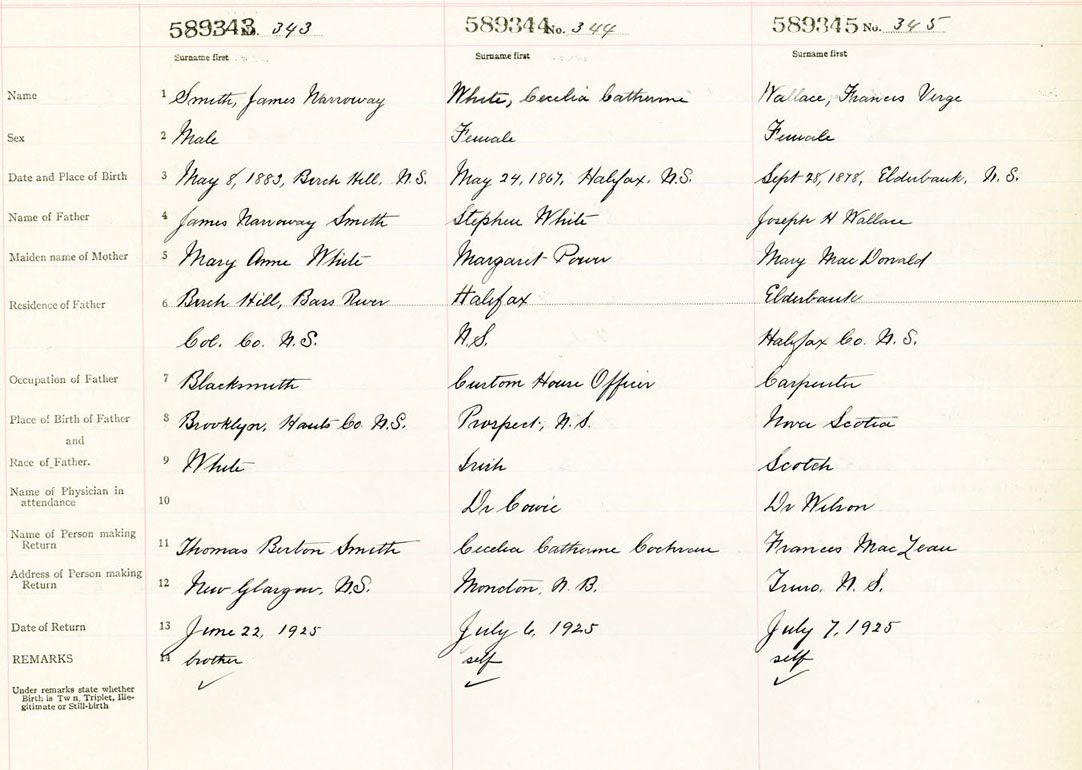 589343 No. 343 589344 No. 344 589345 No. 345
Surname first Surname first Surname first
Name 1 Smith, James Narroway White, Cecelia Catherine Wallace, Francis Verge
Sex 2 Male Female Female
Date and Place of Birth 3 May 8, 1883, Birch Hill, N.S. May 24, 1867, Halifax, N.S. Sept 28, 1878, Elderbank, N.S.
Name of Father 4 James Narroway Smith Stephen White Joseph H Wallace
Maiden name of Mother 5 Mary Anne White Margaret Power Mary MacDonald
Residence of Father 6 Birch Hill, Bass River Halifax Elderbank
Col. Co. N.S. N.S. Halifax Co. N.S.
Occupation of Father 7 Blacksmith Custom House Officer Carpenter
Place of Birth of Father 8 Brooklyn, Hants Co. N.S. Prospect, N.S. Nova Scotia
and
Race of Father. 9 White Irish Scotch
Name of Physician in
attendance 10 Dr Cowie Dr Wilson
Name of Person making
Return 11 Thomas Burton Smith Cecelia Catherine Cochran Frances MacLean
Address of Person making
Return 12 New Glasgow, N.S. Moncton, N.B. Truro, N.S.
Date of Return 13 June 22, 1925 July 6, 1925 July 7, 1925
REMARKS 14 brother self self
Under remarks state whether
Birth is Twin, Triplet, Ille-
gitimate or Still-birth